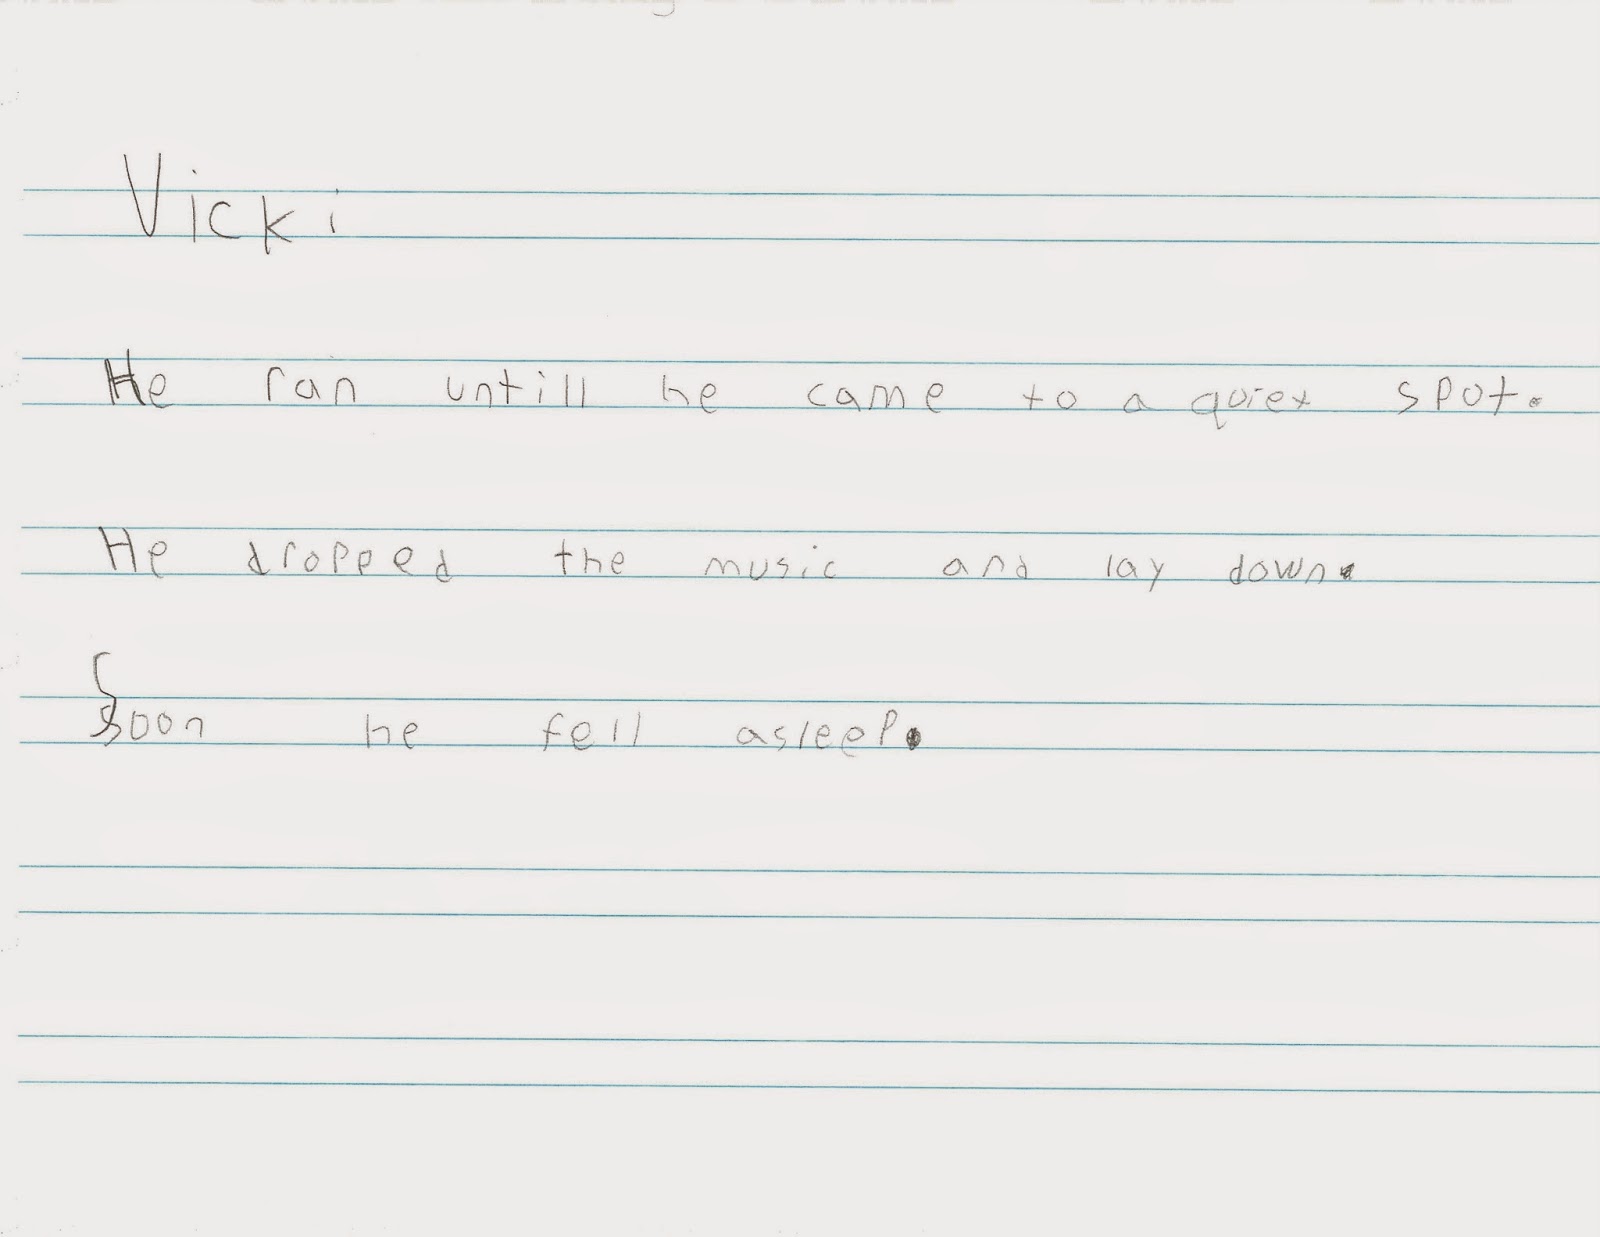 Vicki
He ran untill he came to a quiet spot.
He dropped the music and lay down.
Soon he fell asleep.